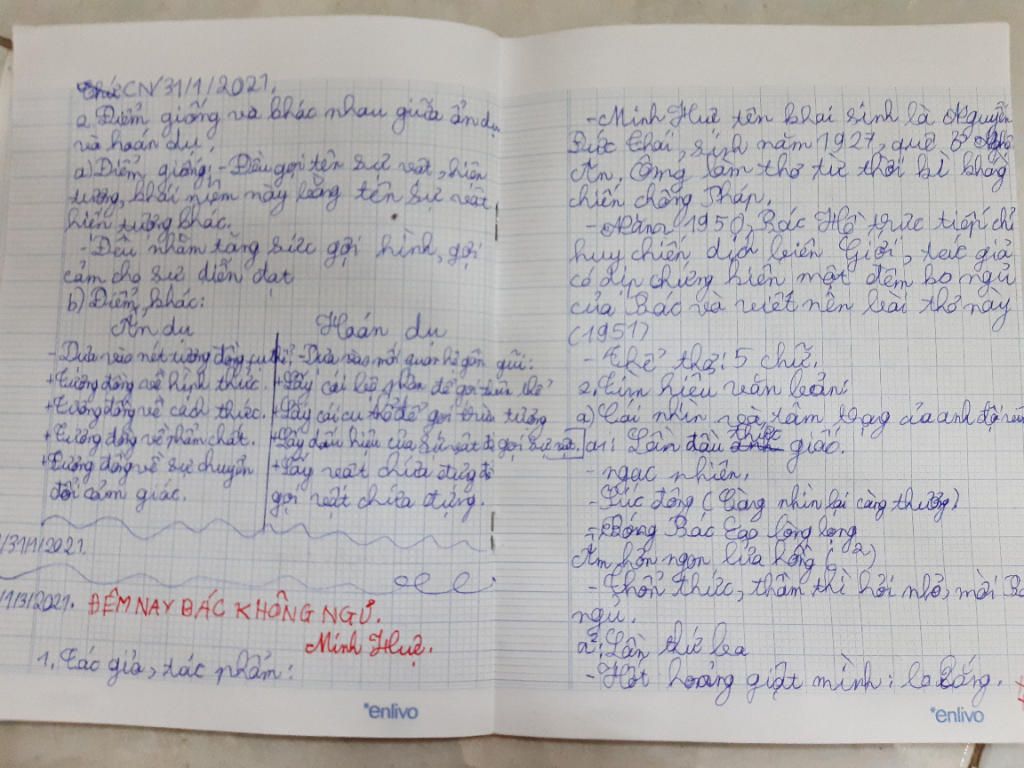 CN 31/1/2021.
2. Điểm giống và khác nhau giữa ẩn dụ
và hoán dụ.
a) Điểm giống: - Đều gọi tên sự vật, hiện
tượng, khái niệm này bằng tên sự vật
hiện tượng khác.
- Đều nhằm tăng sức gợi hình, gợi
cảm cho sự diễn đạt
b) Điểm khác:
Ẩn dụ
Hoán dụ
- Dựa vào nét tương đồng cụ thể:
- Dựa vào mối quan hệ gần gũi:
+ Tương đồng về hình thức.
+ Lấy cái bộ phận để gọi toàn thể
+ Tương đồng về cách thức.
+ Lấy cái cụ thể để gọi trừu tượng
+ Tương đồng về phẩm chất.
+ Lấy dấu hiệu của sự vật để gọi sự vật.
+ Tương đồng về sự chuyển
đổi cảm giác.
+ Lấy vật chứa đựng để
gọi vật chứa đựng.
/31/1/2021.
/1/3/2021. ĐÊM NAY BÁC KHÔNG NGỦ.
Minh Huệ.
1. Tác giả, tác phẩm:
enlivo
- Minh Huệ tên khai sinh là Nguyễn
Đức Thái, sinh năm 1927, quê ở Nghệ
An, Ông làm thơ từ thời kì kháng
chiến chống Pháp.
- Năm 1950, Bác Hồ trực tiếp chỉ
huy chiến dịch biên Giới, tác giả
có dịp chứng kiến một đêm ko ngủ
của Bác và viết nên bài thơ này
(1951)
- Thể thơ: 5 chữ.
2. Tìm hiểu văn bản:
a) Cái nhìn và tâm trạng của anh đội viên
a1: Lần đầu thức giấc.
- ngạc nhiên.
- Xúc động (Càng nhìn lại càng thương)
- Bóng Bác cao lồng lộng
Ấm hơn ngọn lửa hồng (2)
- Thổn thức, thầm thì hỏi nhỏ, mời Bác
ngủ.
a2: Lần thứ ba
- Hốt hoảng giật mình: lo lắng.
enlivo